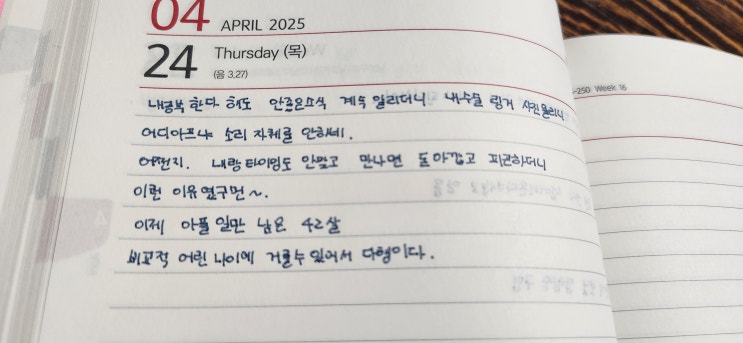 04 APRIL 2025
24 Thursday (목)
(음 3.27)
-250 Week 16
한다 해도 안좋은소식 계속 알리더니 내수술 링거 사진 올리니
어디아프냐 소리 자체를 안하네.
어쩐지. 내랑 타이밍도 안맞고 만나면 돈아깝고 피곤하더니
이런 이유였구먼~.
이제 아플 일만 남은 42살
비교적 어린 나이에 거를수 있어서 다행이다.